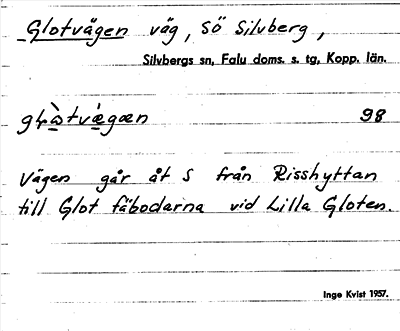 Glotvägen väg, SÖ Silvberg,
Silvbergs sn, Falu doms. s. tg, Kopp. län.
98
Vägen går åt S från Risshyttan
till Glot fäbodarna vid Lilla Gloten.
Inge Kvist 1957.